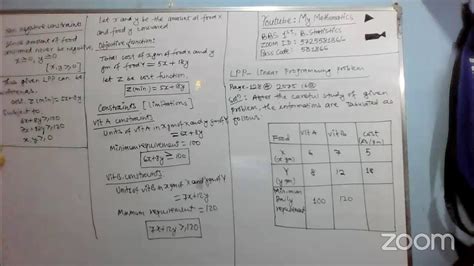 Non negative constraints
Since amount of food
consumed never be negative,
x ≥ 0, y ≥ 0
Thus given LPP can be
cost, Z(min) = 5x+18y
Subject to
6x+8y ≥ 100
7x+12y ≥ 120
x, y ≥ 0
Let x and y be the amount of food x
and food y consumed
Objective function:
Total cost of x gm of food x and y
gm of food Y = 5x+18y
Let Z be cost function,
Z(min) = 5x+18y
Constraints [Limitations]
Vit A constraints
Units of vit A in x gm of X and y gm of Y
= 6x+8y
Minimum requirement = 100
6x+8y ≥ 100
Vit B constraints
Units of vit B in x gm of X and y gm of Y
= 7x+12y
requirement = 120
7x+12y ≥ 120
Youtube: My Mathematics
BBS 1st, B. Statistics
ZOOM ID:
Pass Code:
LPP- Linear Programming problem
Page-128
After the careful study of given
problem, the informations are tabulated as
follows
Food Vit A Vit B Cost
X 6 7 5
(x gm)
Y 8 12 18
(y gm)
Minimum 100 120
Daily
requirement
zoom